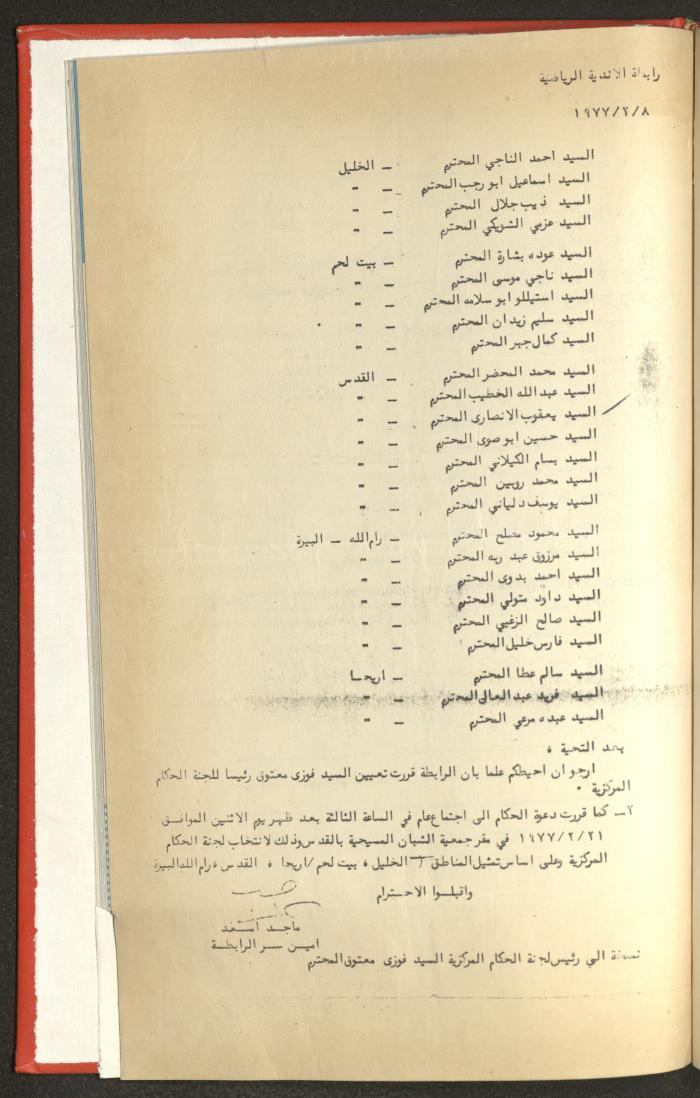 رابطة الاندية الرياضية
١٩٧٧/٢/٨
السيد احمد الناجي المحترم – الخليل
السيد اسماعيل ابو رجب المحترم – "
السيد ذيب جلال المحترم – "
السيد عزمي الشويكي المحترم – "
السيد عوده بشارة المحترم – بيت لحم
السيد ناجي موسى المحترم – "
السيد استيللو ابو سلامه المحترم – "
السيد سليم زيدان المحترم – "
السيد كمال جبر المحترم – "
السيد محمد المحضر المحترم – القدس
السيد عبد الله الخطيب المحترم – "
السيد يعقوب الانصارى المحترم – "
السيد حسين ابو صوى المحترم – "
السيد بسام الكيلاني المحترم – "
السيد محمد روبين المحترم – "
السيد يوسف دلياني المحترم – "
السيد محمود مصلح المحترم – رام الله – البيرة
السيد مرزوق عبد ربه المحترم – "
السيد احمد بدوى المحترم – "
السيد داود متولي المحترم – "
السيد صالح الزغبي المحترم – "
السيد فارس خليل المحترم – "
السيد سالم عطا المحترم – اريحا
السيد فريد عبد العالي المحترم – "
السيد عبده مرعي المحترم – "
بعد التحية ،
ارجو ان احيطكم علما بان الرابطة قررت تعيين السيد فوزى معتوق رئيسا للجنة الحكام
المركزية .
٢– كما قررت دعوة الحكام الى اجتماع عام في الساعة الثالثة بعد ظهر يوم الاثنين الموافق
١٩٧٧/٢/٢١ في مقر جمعية الشبان المسيحية بالقدس وذلك لانتخاب لجنة الحكام
المركزية وعلى اساس تمثيل المناطق / الخليل ، بيت لحم /اريحا ، القدس ، رام الله البيرة
واقبلوا الاحترام
ماجد اسعد
امين سر الرابطة
نسخة الى رئيس لجنة الحكام المركزية السيد فوزى معتوق المحترم